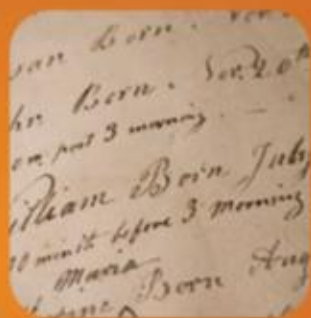 Born.
Born. 20th
past 3 morning
William Born July
10 minits before 3 morning
Maria
Born Aug